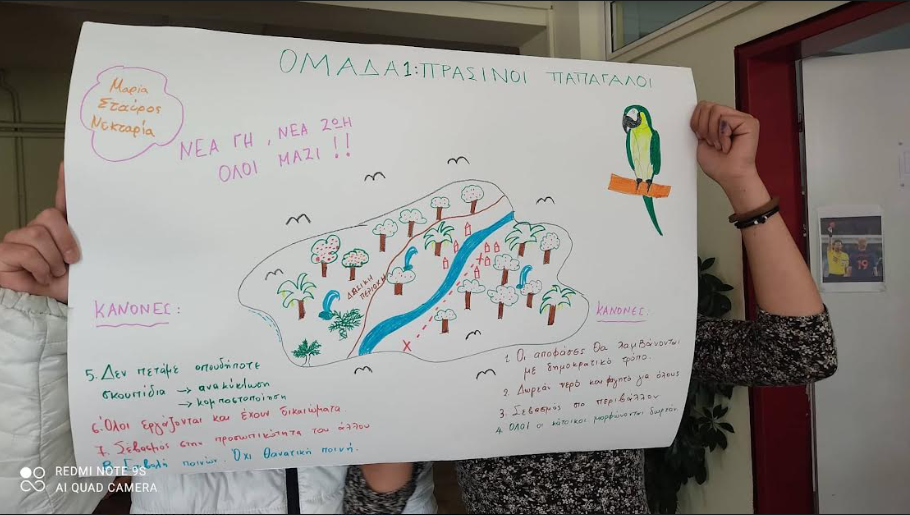 ΟΜΑΔΑ1:ΠΡΑΣΙΝΟΙ ΠΑΠΑΓΑΛΟΙ
Μαρία
Σταύρος
Νεκταρία
ΝΕΑ ΓΗ, ΝΕΑ ΖΩΗ
ΟΛΟΙ ΜΑΖΙ !!
ΔΑΣΙΚΗ
ΠΕΡΙΟΧΗ
ΚΑΝΟΝΕΣ:
1. Οι αποφάσεις θα λαμβάνονται
με δημοκρατικό τρόπο.
2. Δωρεάν νερό και φαγητό για όλους
3. Σεβασμός στο περιβάλλον
4. ΟΛΟΙ οι κάτοικοι μορφώνονται δωρεάν
ΚΑΝΟΝΕΣ:
5. Δεν πετάμε οπουδήποτε
σκουπίδια → ανακύκλωση
→ κομποστοποίηση
6. Όλοι εργάζονται και έχουν δικαιώματα
7. Σεβασμός στην προσωπικότητα του άλλου
8. ποινών. Όχι θανατική ποινή.
REDMI NOTE 9S
AI QUAD CAMERA